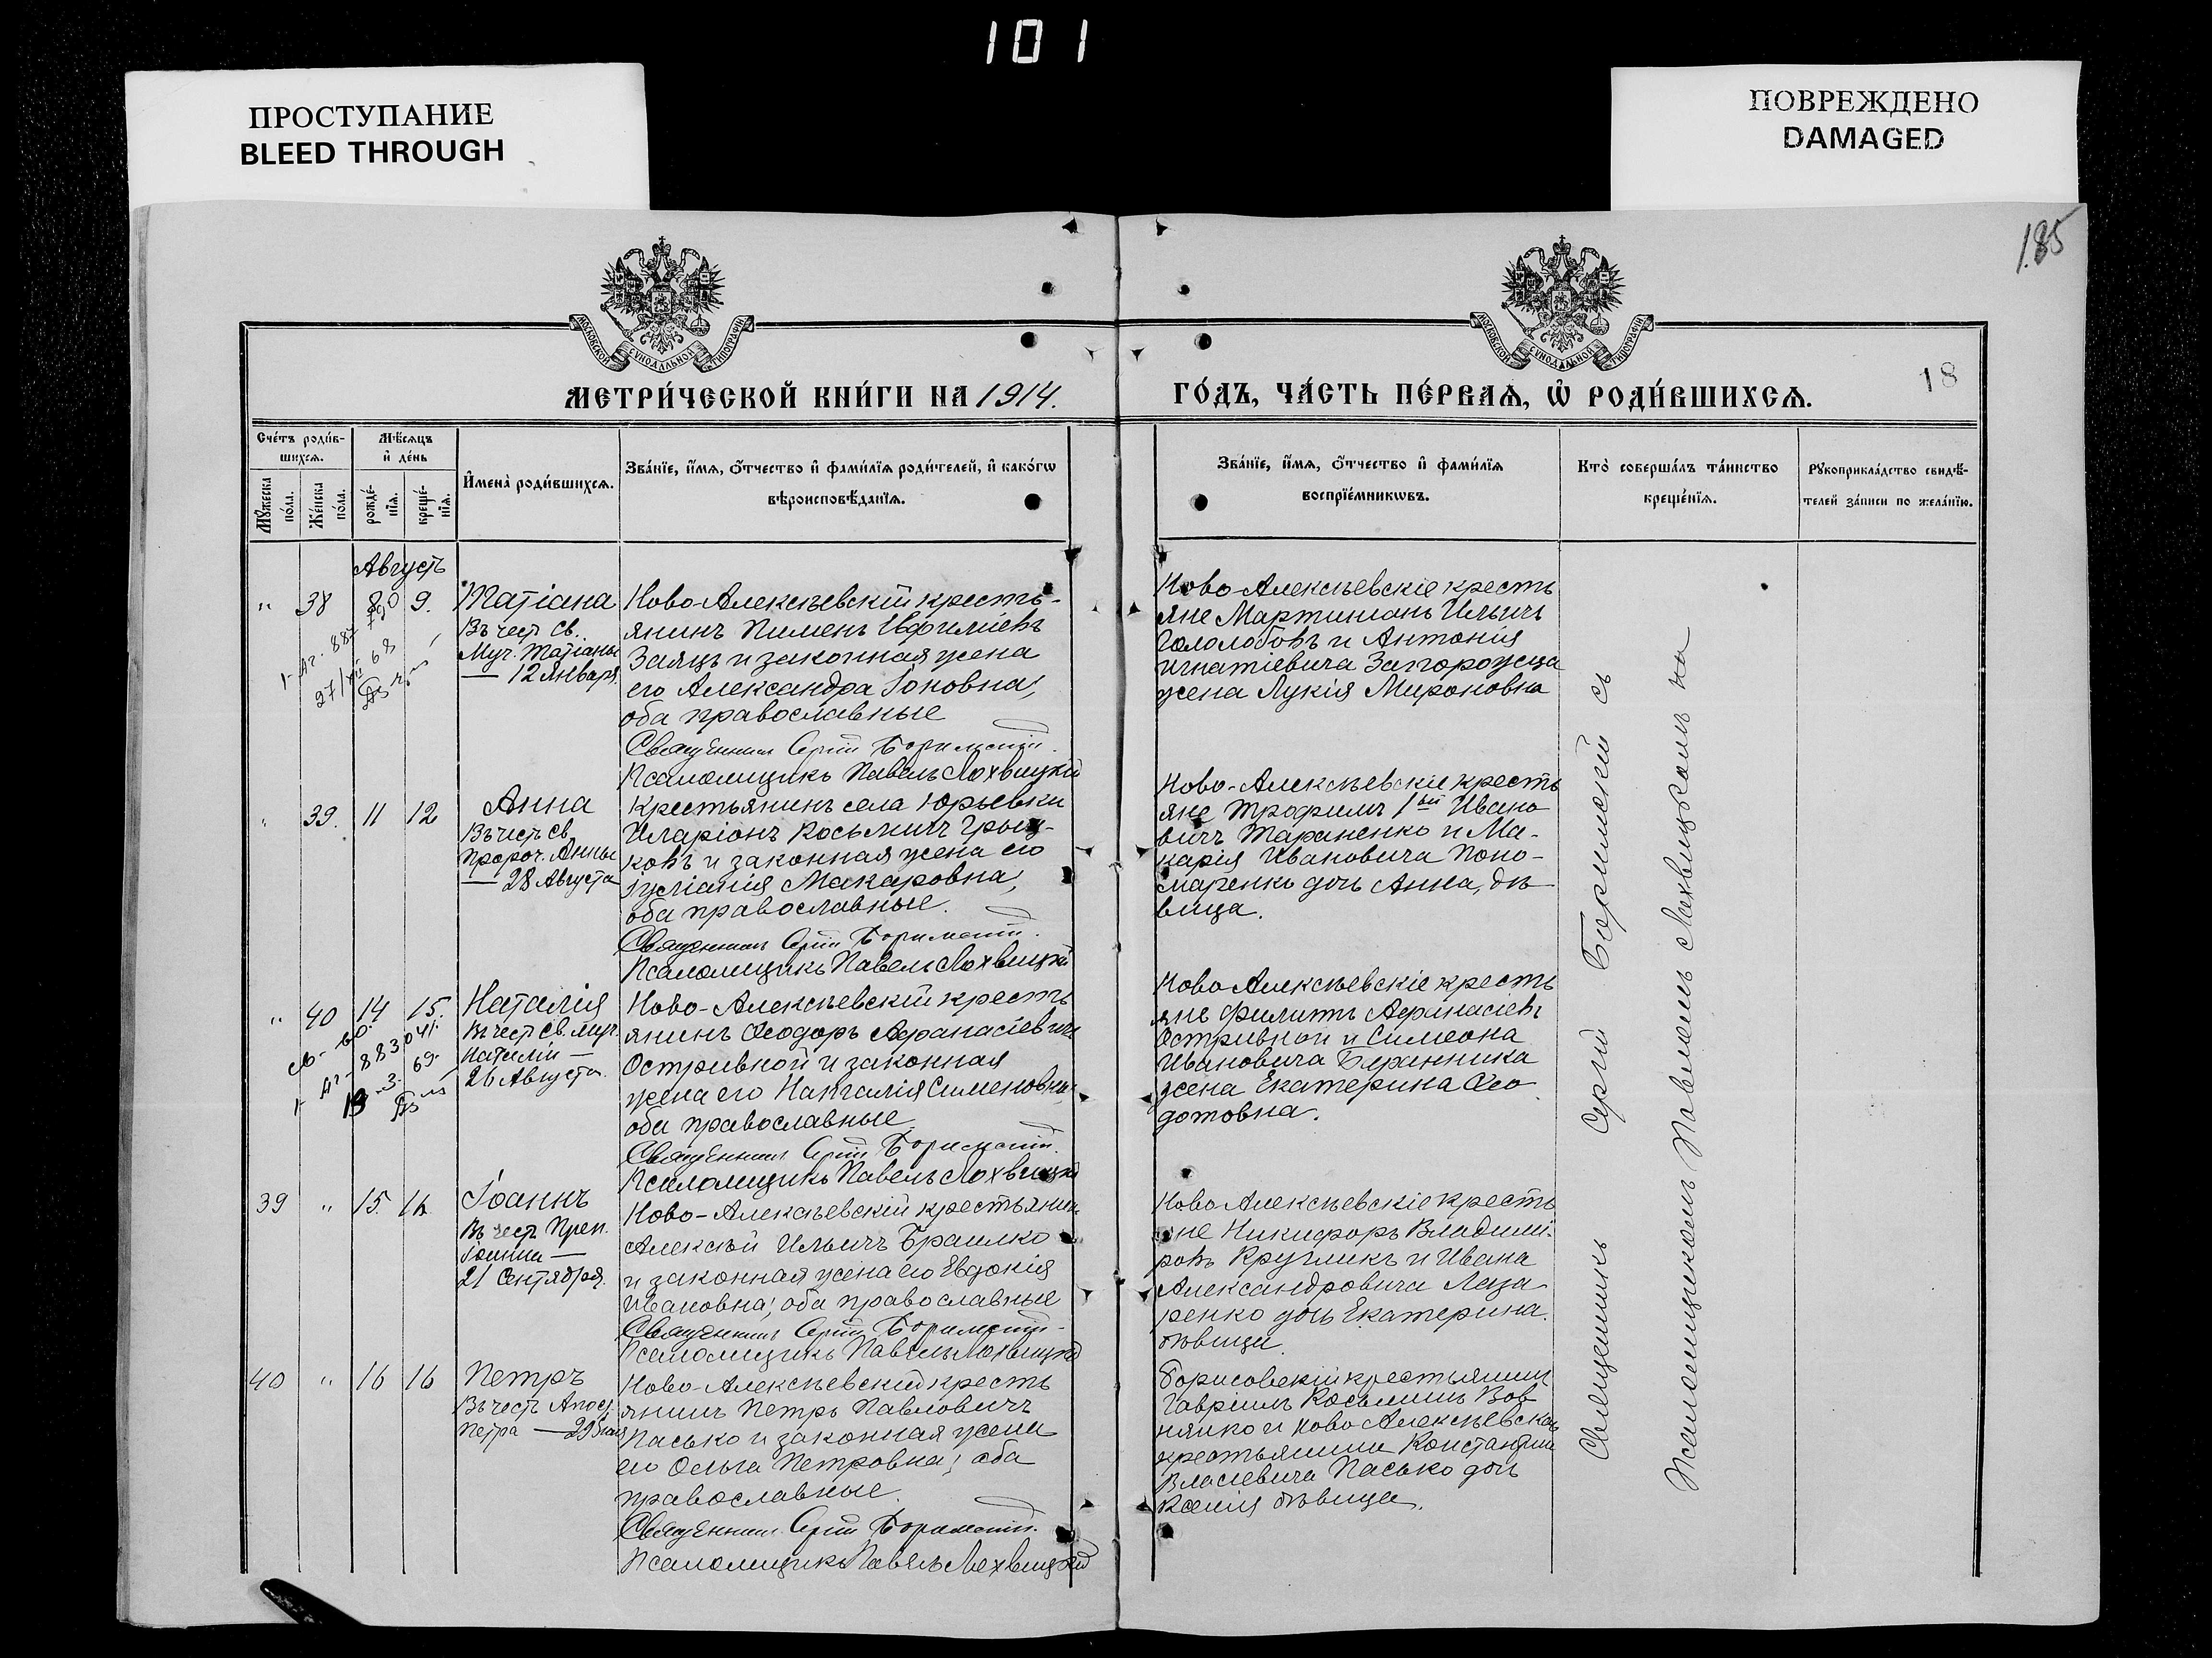 101
ПРОСТУПАНИЕ
BLEED THROUGH
ПОВРЕЖДЕНО
DAMAGED
185
18
МОСКОВСКОЙ СѴНОДАЛЬНОЙ ТИПОГРАФІИ
МОСКОВСКОЙ СѴНОДАЛЬНОЙ ТИПОГРАФІИ
МЕТРИ́ЧЕСКОЙ КНИ́ГИ НА 1914.
ГО́ДЪ, ЧА́СТЬ ПЕ́РВАѦ, Ѡ҆ РОДИ́ВШИХСѦ.
Сче́тъ роди́в-
шихсѧ.
Мꙋ́жеска по́ла.
Же́нска по́ла.
Мѣ́сѧцъ
и҆ де́нь
рожде́-нїѧ.
креще́-нїѧ.
И҆мена̀ роди́вшихсѧ.
Зва́нїе, и҆́мѧ, ѻ҆́тчество и҆ фами́лїѧ роди́телей, и҆ како́гѡ
вѣроисповѣ́данїѧ.
Зва́нїе, и҆́мѧ, ѻ҆́тчество и҆ фами́лїѧ
воспрїе́мникѡвъ.
Кто̀ соверша́лъ та́инство
креще́нїѧ.
Рꙋкоприкла́дство свидѣ́-
телей за́писи по жела́нїю.
Августъ
" 38 8 9.
Татіана
Въ чест св.
Муч. Татіаны
— 12 Января
Ново-Алексѣевскій кресть-
янинъ Пименъ Евфиміевъ
Заяцъ и законная жена
его Александра Іоновна,
оба православные
Священникъ Сергій
Псаломщикъ Павелъ Лохвицкій
Ново-Алексѣевскіе кресть
яне Мартиніанъ Ильичъ
Гололобовъ и Антонія
Игнатіевича Запорожца
жена Лукія Мироновна
39. 11 12
Анна
Въ чест св.
пророч. Анны
— 28 Августа
Крестьянинъ села Юрьевки
Иларіонъ Косьмичъ Грыц-
ковъ и законная жена его
Іуліанія Макаровна,
оба православные.
Священникъ Сергій
Псаломщикъ Павелъ Лохвицкій
Ново-Алексѣевскіе кресть
яне Трофимъ 1ый Ивано
вичъ Тараненко и Ма-
карія Ивановича Поно-
маренко дочь Анна, дѣ
вица.
" 40 14 15.
Наталія
Въ чест св. муч.
Наталіи —
26 Августа
Ново-Алексѣевскій кресть
янинъ Ѳеодоръ Афанасіевичъ
Остривной и законная
жена его Наталія Сименовна
оба православные
Священникъ Сергій
Псаломщикъ Павелъ Лохвицкій
Ново Алексѣевскіе кресть
яне Филиппъ Афанасіевъ
Остривной и Симеона
Ивановича
жена Екатерина Ѳео
дотовна.
39 " 15. 16
Іоаннъ
Въ чест Преп.
Іоанна —
21 Сентября.
Ново-Алексѣевскій крестьянинъ
Алексѣй Ильичъ Браилко
и законная жена его Евдокія
Ивановна; оба православные
Священникъ Сергій
Псаломщикъ Павелъ Лохвицкій
Ново Алексѣевскіе кресть
яне Никифоръ Владими-
ровъ Кругликъ и Ивана
Александровича Лаза
ренко дочь Екатерина.
дѣвица.
40 " 16 16
Петръ
Въ честь Апос.
Петра — 29
Ново-Алексѣевскій кресть
янинъ Петръ Павловичъ
Пасько и законная жена
его Ольга Петровна; оба
православные.
Священникъ Сергій
Псаломщикъ Павелъ Лохвицкій
Борисовскій крестьянинъ
Гавріилъ Косьминъ Вов
нянко и Ново Алексѣевскаго
крестьянина Константина
Власіевича Пасько дочь
Ксенія дѣвица.
Священникъ Сергій с
Псаломщикомъ Павломъ Лохвицкимъ